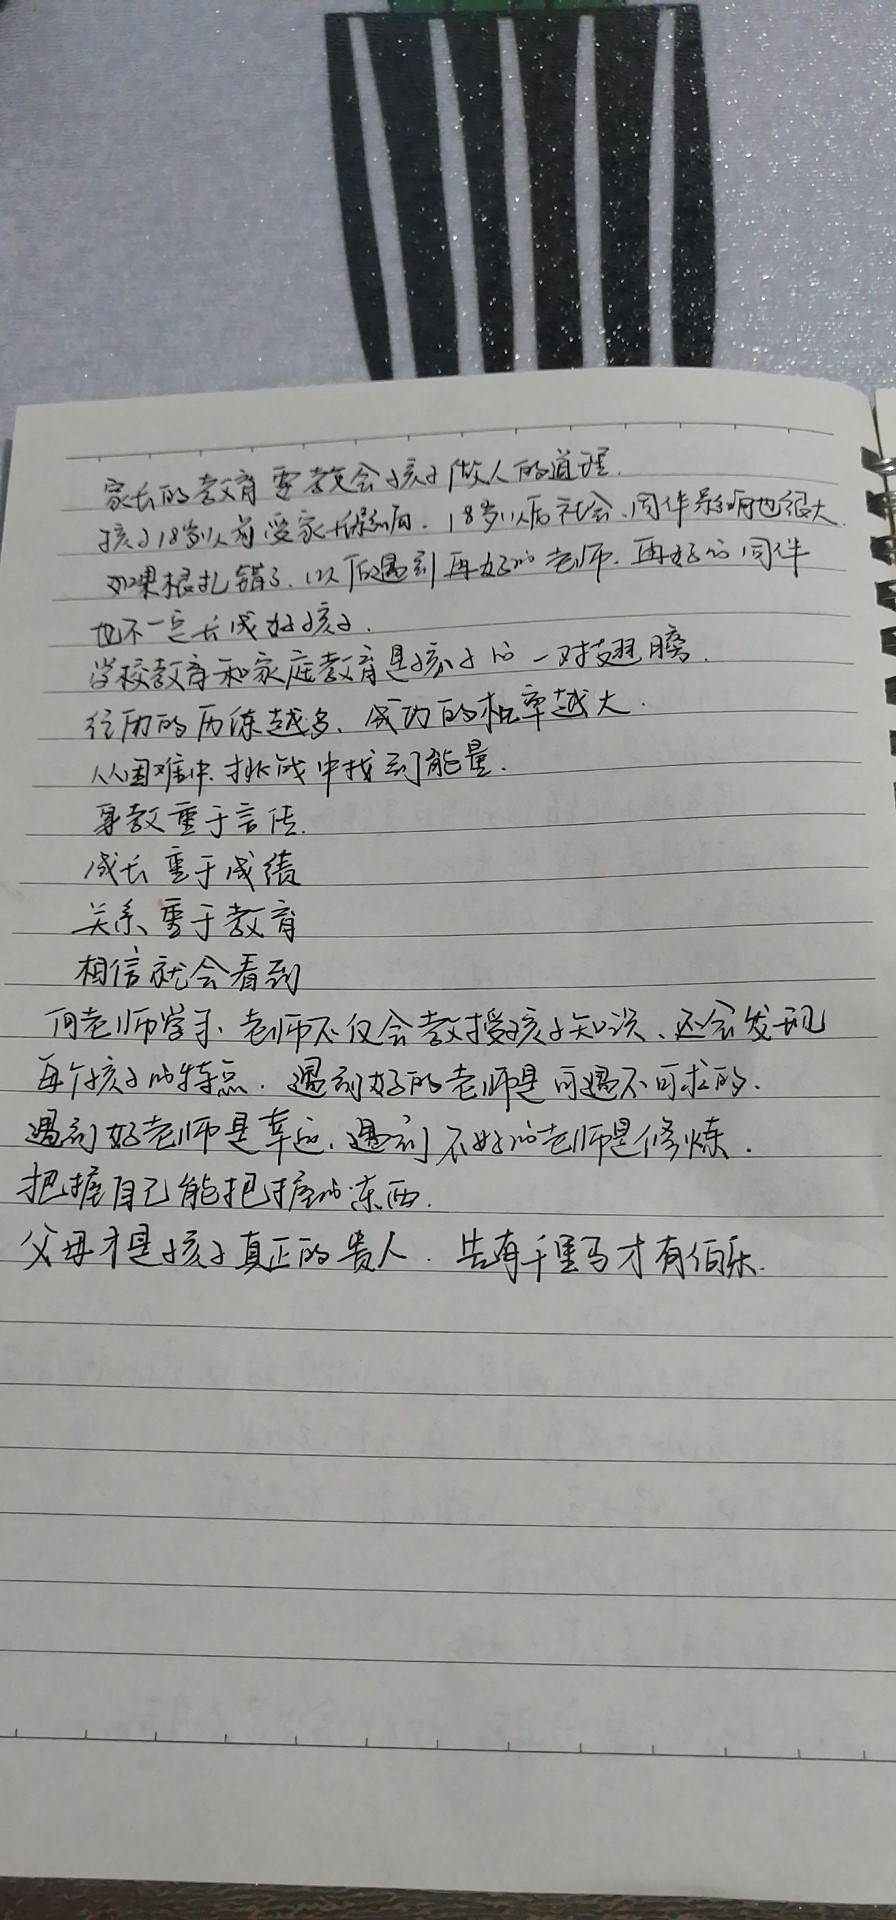 家长的教育要教会孩子做人的道理.
孩子18岁以前受家长影响.18岁以后社会、同伴影响也很大.
如果根扎错了.以后遇到再好的老师.再好的同伴
也不一定长成好孩子.
学校教育和家庭教育是孩子的一对翅膀.
经历的历练越多、成功的概率越大.
从困难中.挑战中找到能量.
身教重于言传.
成长重于成绩
关系重于教育
相信就会看到
向老师学习、老师不仅会教授孩子知识、还会发现
每个孩子的特点.遇到好的老师是可遇不可求的.
遇到好老师是幸运.遇到不好的老师是修炼.
把握自己能把握的东西.
父母才是孩子真正的贵人.先有千里马才有伯乐.